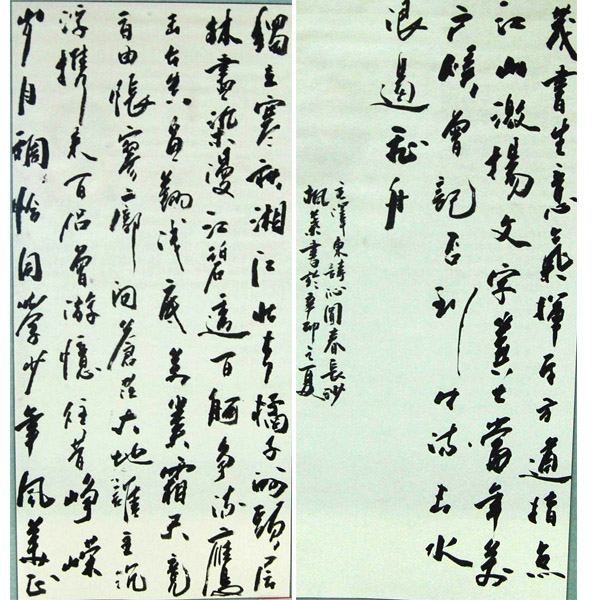 獨立寒秋湘江北去橘子洲頭層
林盡染漫江碧透百舸爭流鷹
擊長空魚翔淺底萬類霜天競
自由悵寥廓問蒼茫大地誰主沉
浮攜來百侶曾游憶往昔崢嶸
歲月稠恰同學少年風華正
茂書生意氣揮斥方遒指點
江山激揚文字糞土當年萬
户侯曾記否到中流擊水
浪遏飛舟
毛澤東詩沁園春長沙
楓葉書於辛卯之夏